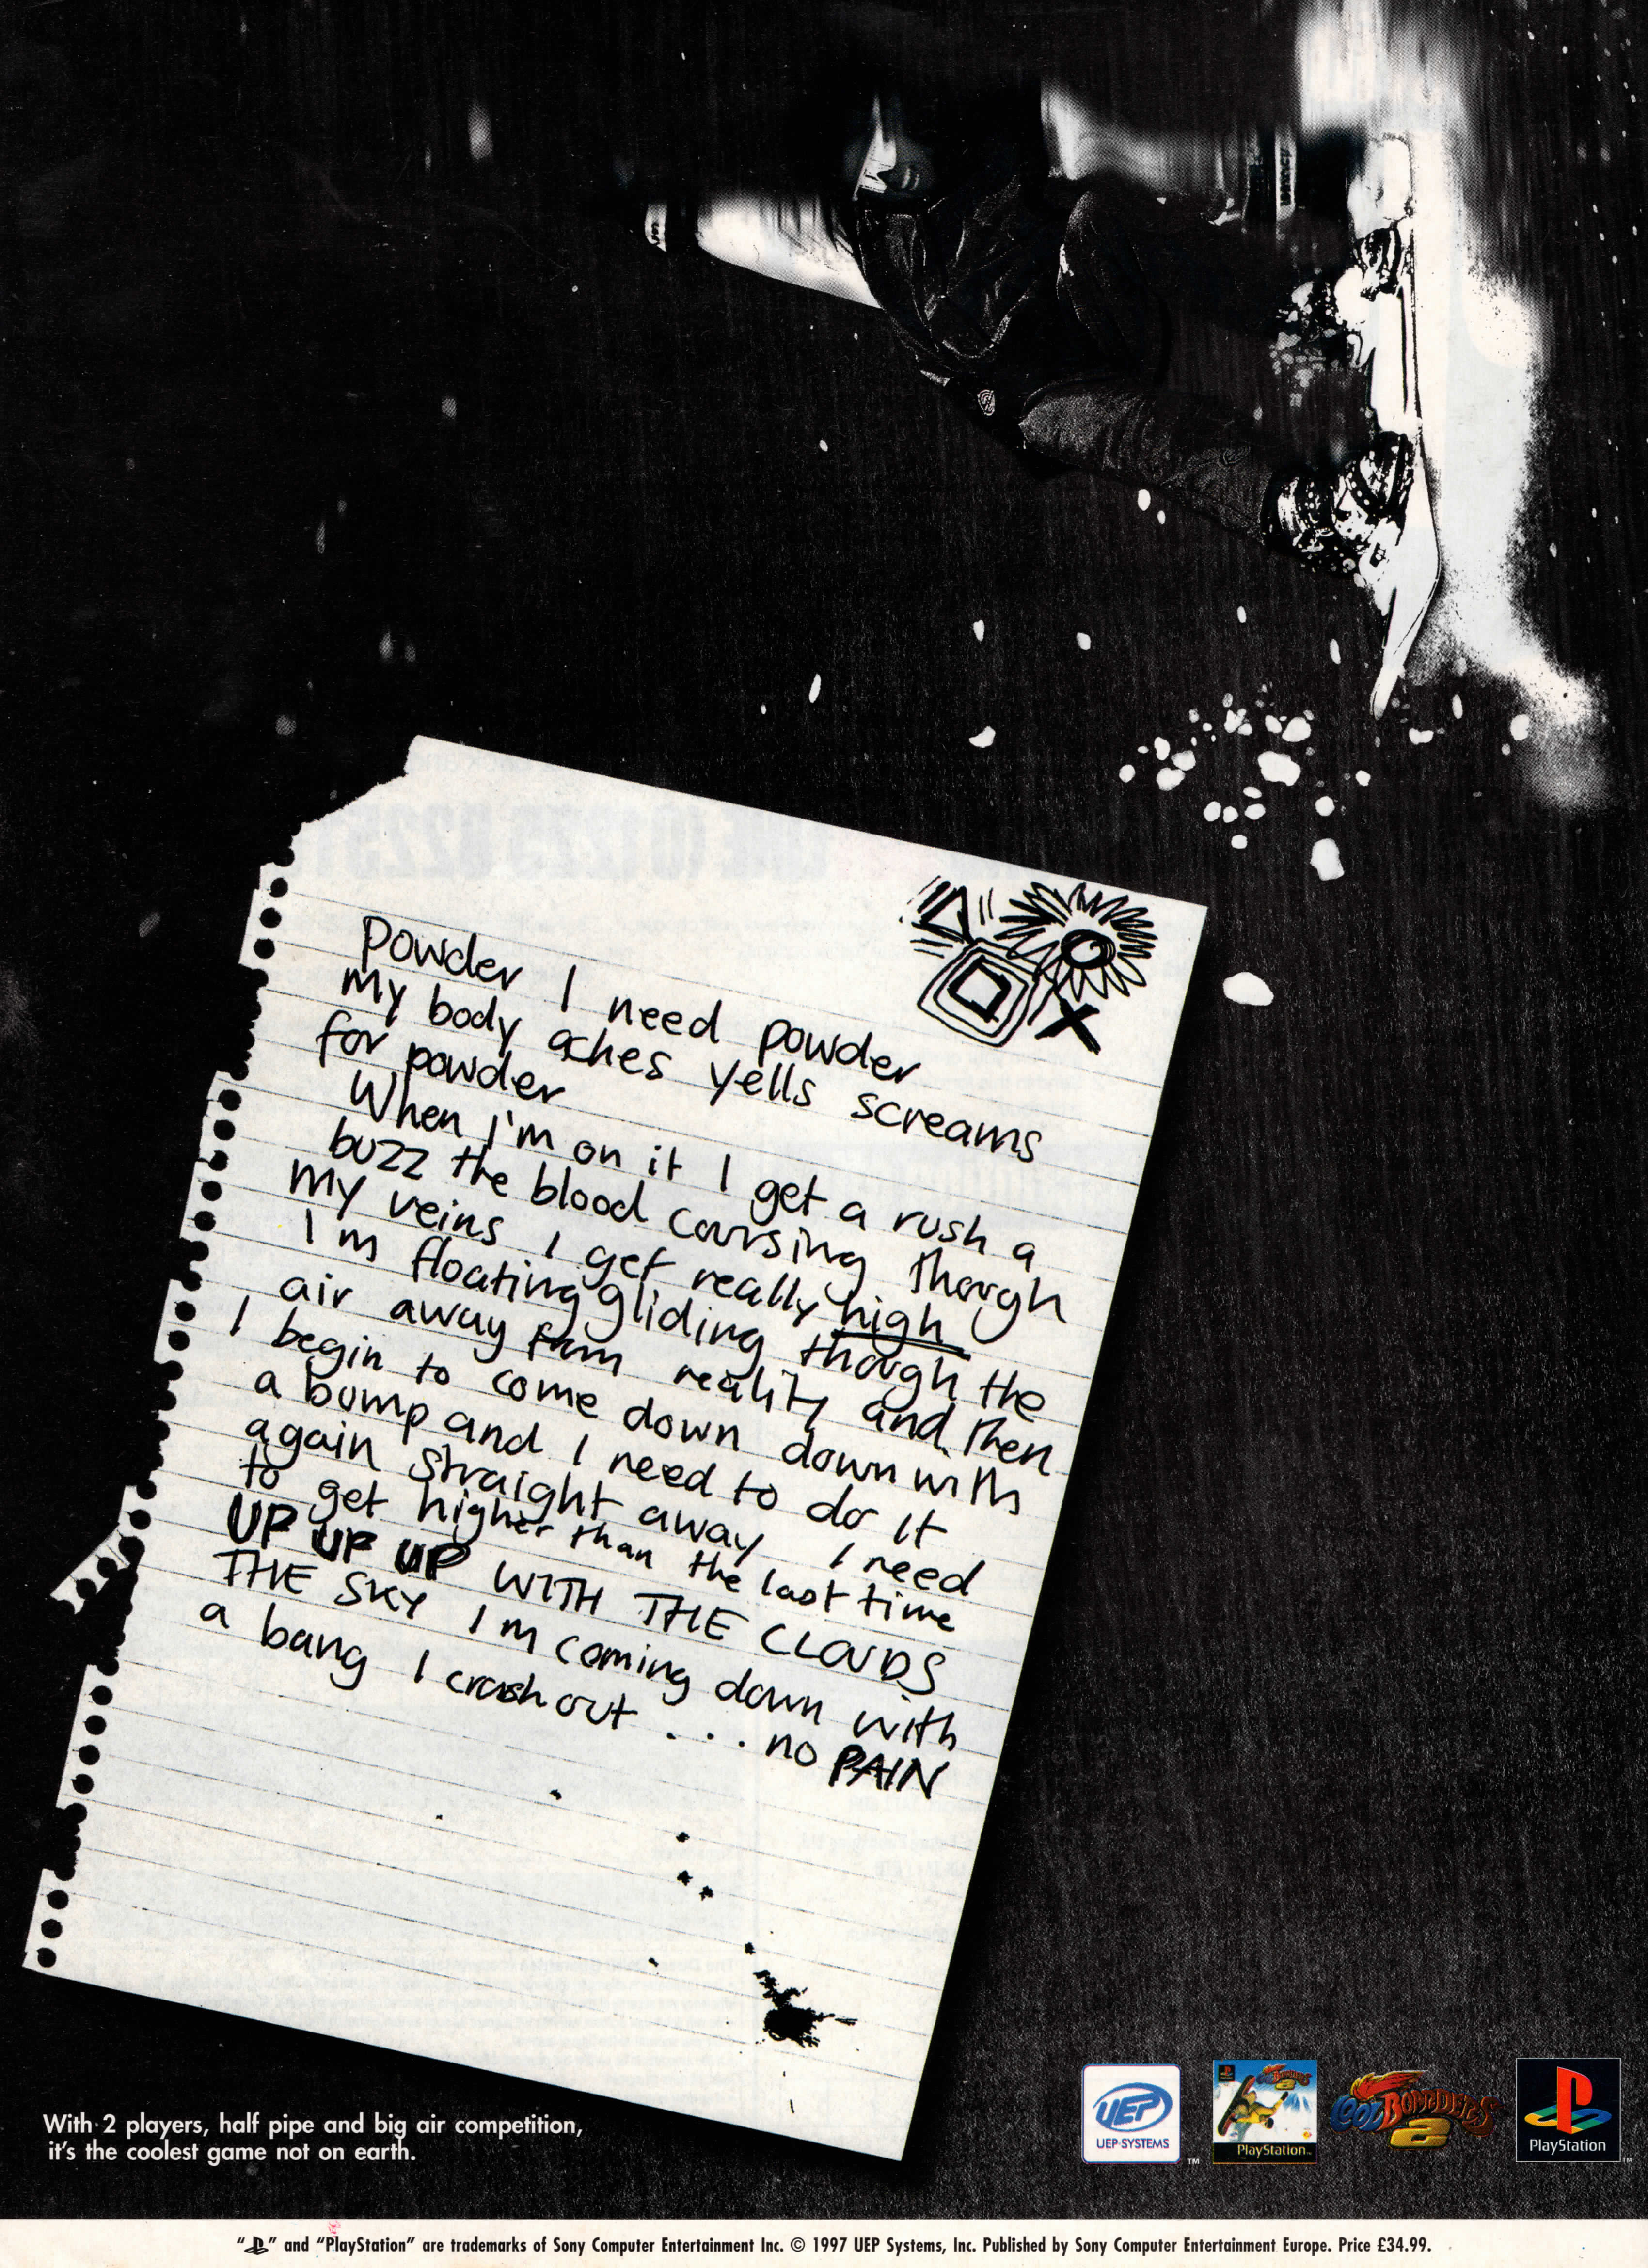 Powder I need powder
my body aches yells screams
for powder
When I'm on it I get a rush a
buzz the blood coursing though
my veins I get really high
I'm floating gliding though the
air away from reality and then
I begin to come down down with
a bump and I need to do it
again straight away I need
to get higher than the last time
UP UP UP WITH THE CLOUDS
THE SKY I'm coming down with
a bang I crash out ... no PAIN
With 2 players, half pipe and big air competition,
it's the coolest game not on earth.
UEP
UEP SYSTEMS
TM
CoolBoarders
2
PlayStation
CoolBoarders
2
PlayStation
TM
" " and "PlayStation" are trademarks of Sony Computer Entertainment Inc. © 1997 UEP Systems, Inc. Published by Sony Computer Entertainment Europe. Price £34.99.